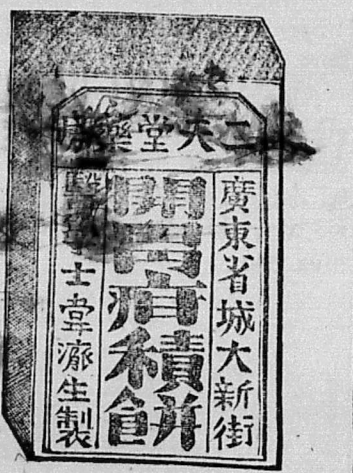 二天堂藥廠
廣東省城大新街
開胃疳積餅
士韋生製